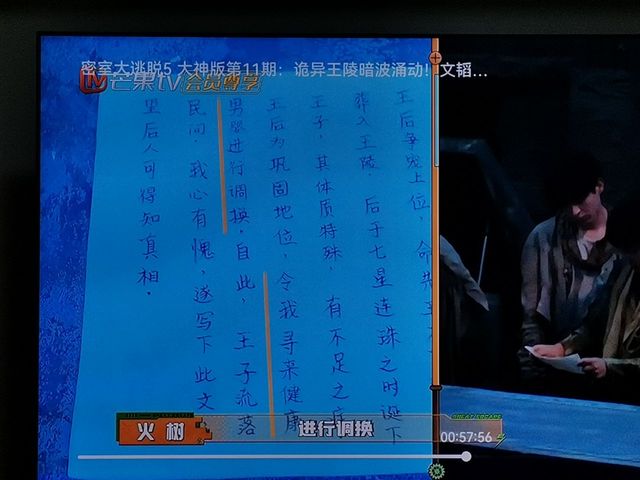 密室大逃脱5 大神版第11期：诡异王陵暗波涌动！文韬...
芒果tv 会员尊享
王后争宠上位，命
入王陵 后于七星连珠之时诞下
王子，其体质特殊，有不足之症
王后为巩固地位，令我寻来健康
男婴进行调换。自此，王子流落
民间，我心有愧，遂写下此文
望后人可得知真相。
GREAT ESCAPE
火树 进行调换
00:57:56